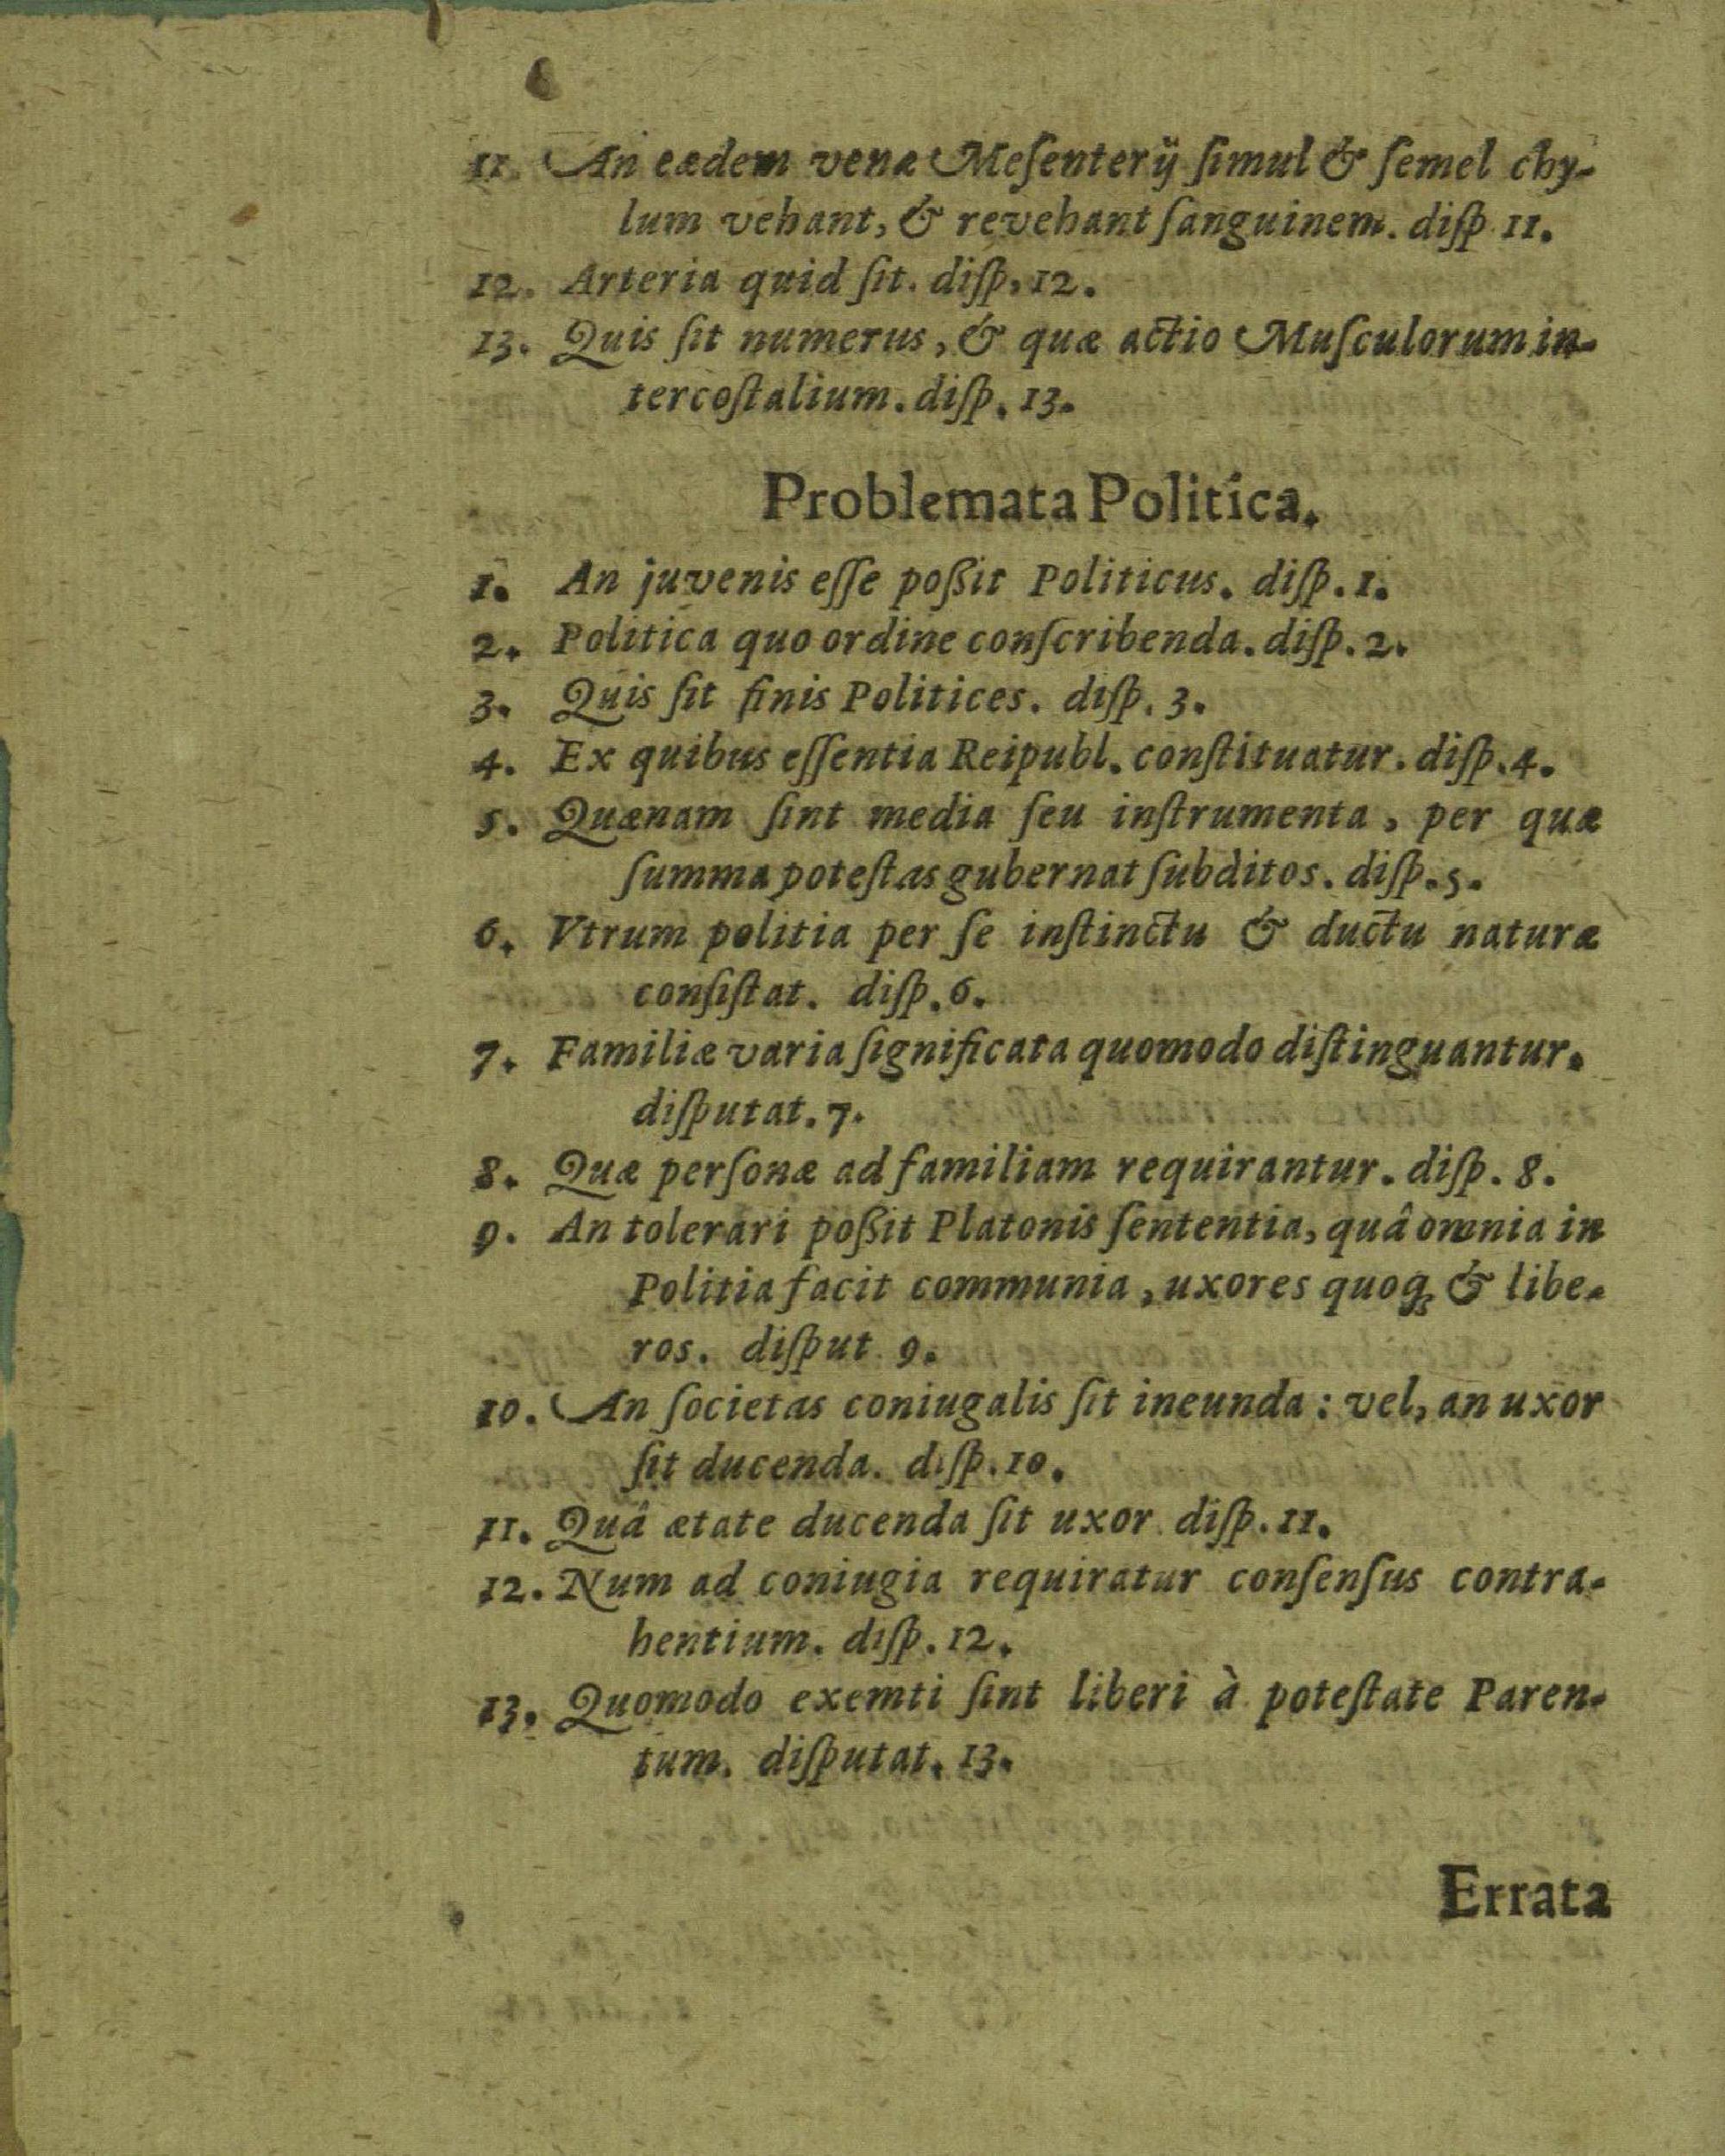 11. An eædem venæ Meſenterij ſimul & ſemel chy-
lum vehant, & revehant ſanguinem. diſp 11.
12. Arteria quid ſit. diſp. 12.
13. Quis ſit numerus, & quæ actio Muſculorum in-
tercoſtalium. diſp. 13.
Problemata Politica.
1. An juvenis eſſe poßit Politicus. diſp. 1.
2. Politica quo ordine conſcribenda. diſp. 2.
3. Quis ſit finis Politices. diſp. 3.
4. Ex quibus eſſentia Reipubl. conſtituatur. diſp. 4.
5. Quænam ſint media ſeu inſtrumenta, per quæ
ſumma poteſtas gubernat ſubditos. diſp. 5.
6. Vtrum politia per ſe inſtinctu & ductu naturæ
conſiſtat. diſp. 6.
7. Familiæ varia ſignificata quomodo diſtinguantur.
diſputat. 7.
8. Quæ perſonæ ad familiam requirantur. diſp. 8.
9. An tolerari poßit Platonis ſententia, quâ omnia in
Politia facit communia, uxores quoqꝫ & libe-
ros. diſput 9.
10. An ſocietas coniugalis ſit ineunda: vel, an uxor
ſit ducenda. diſp. 10.
11. Quâ ætate ducenda ſit uxor diſp. 11.
12. Num ad coniugia requiratur conſenſus contra-
hentium. diſp. 12.
13. Quomodo exemti ſint liberi à poteſtate Paren-
tum. diſputat. 13.
Errata